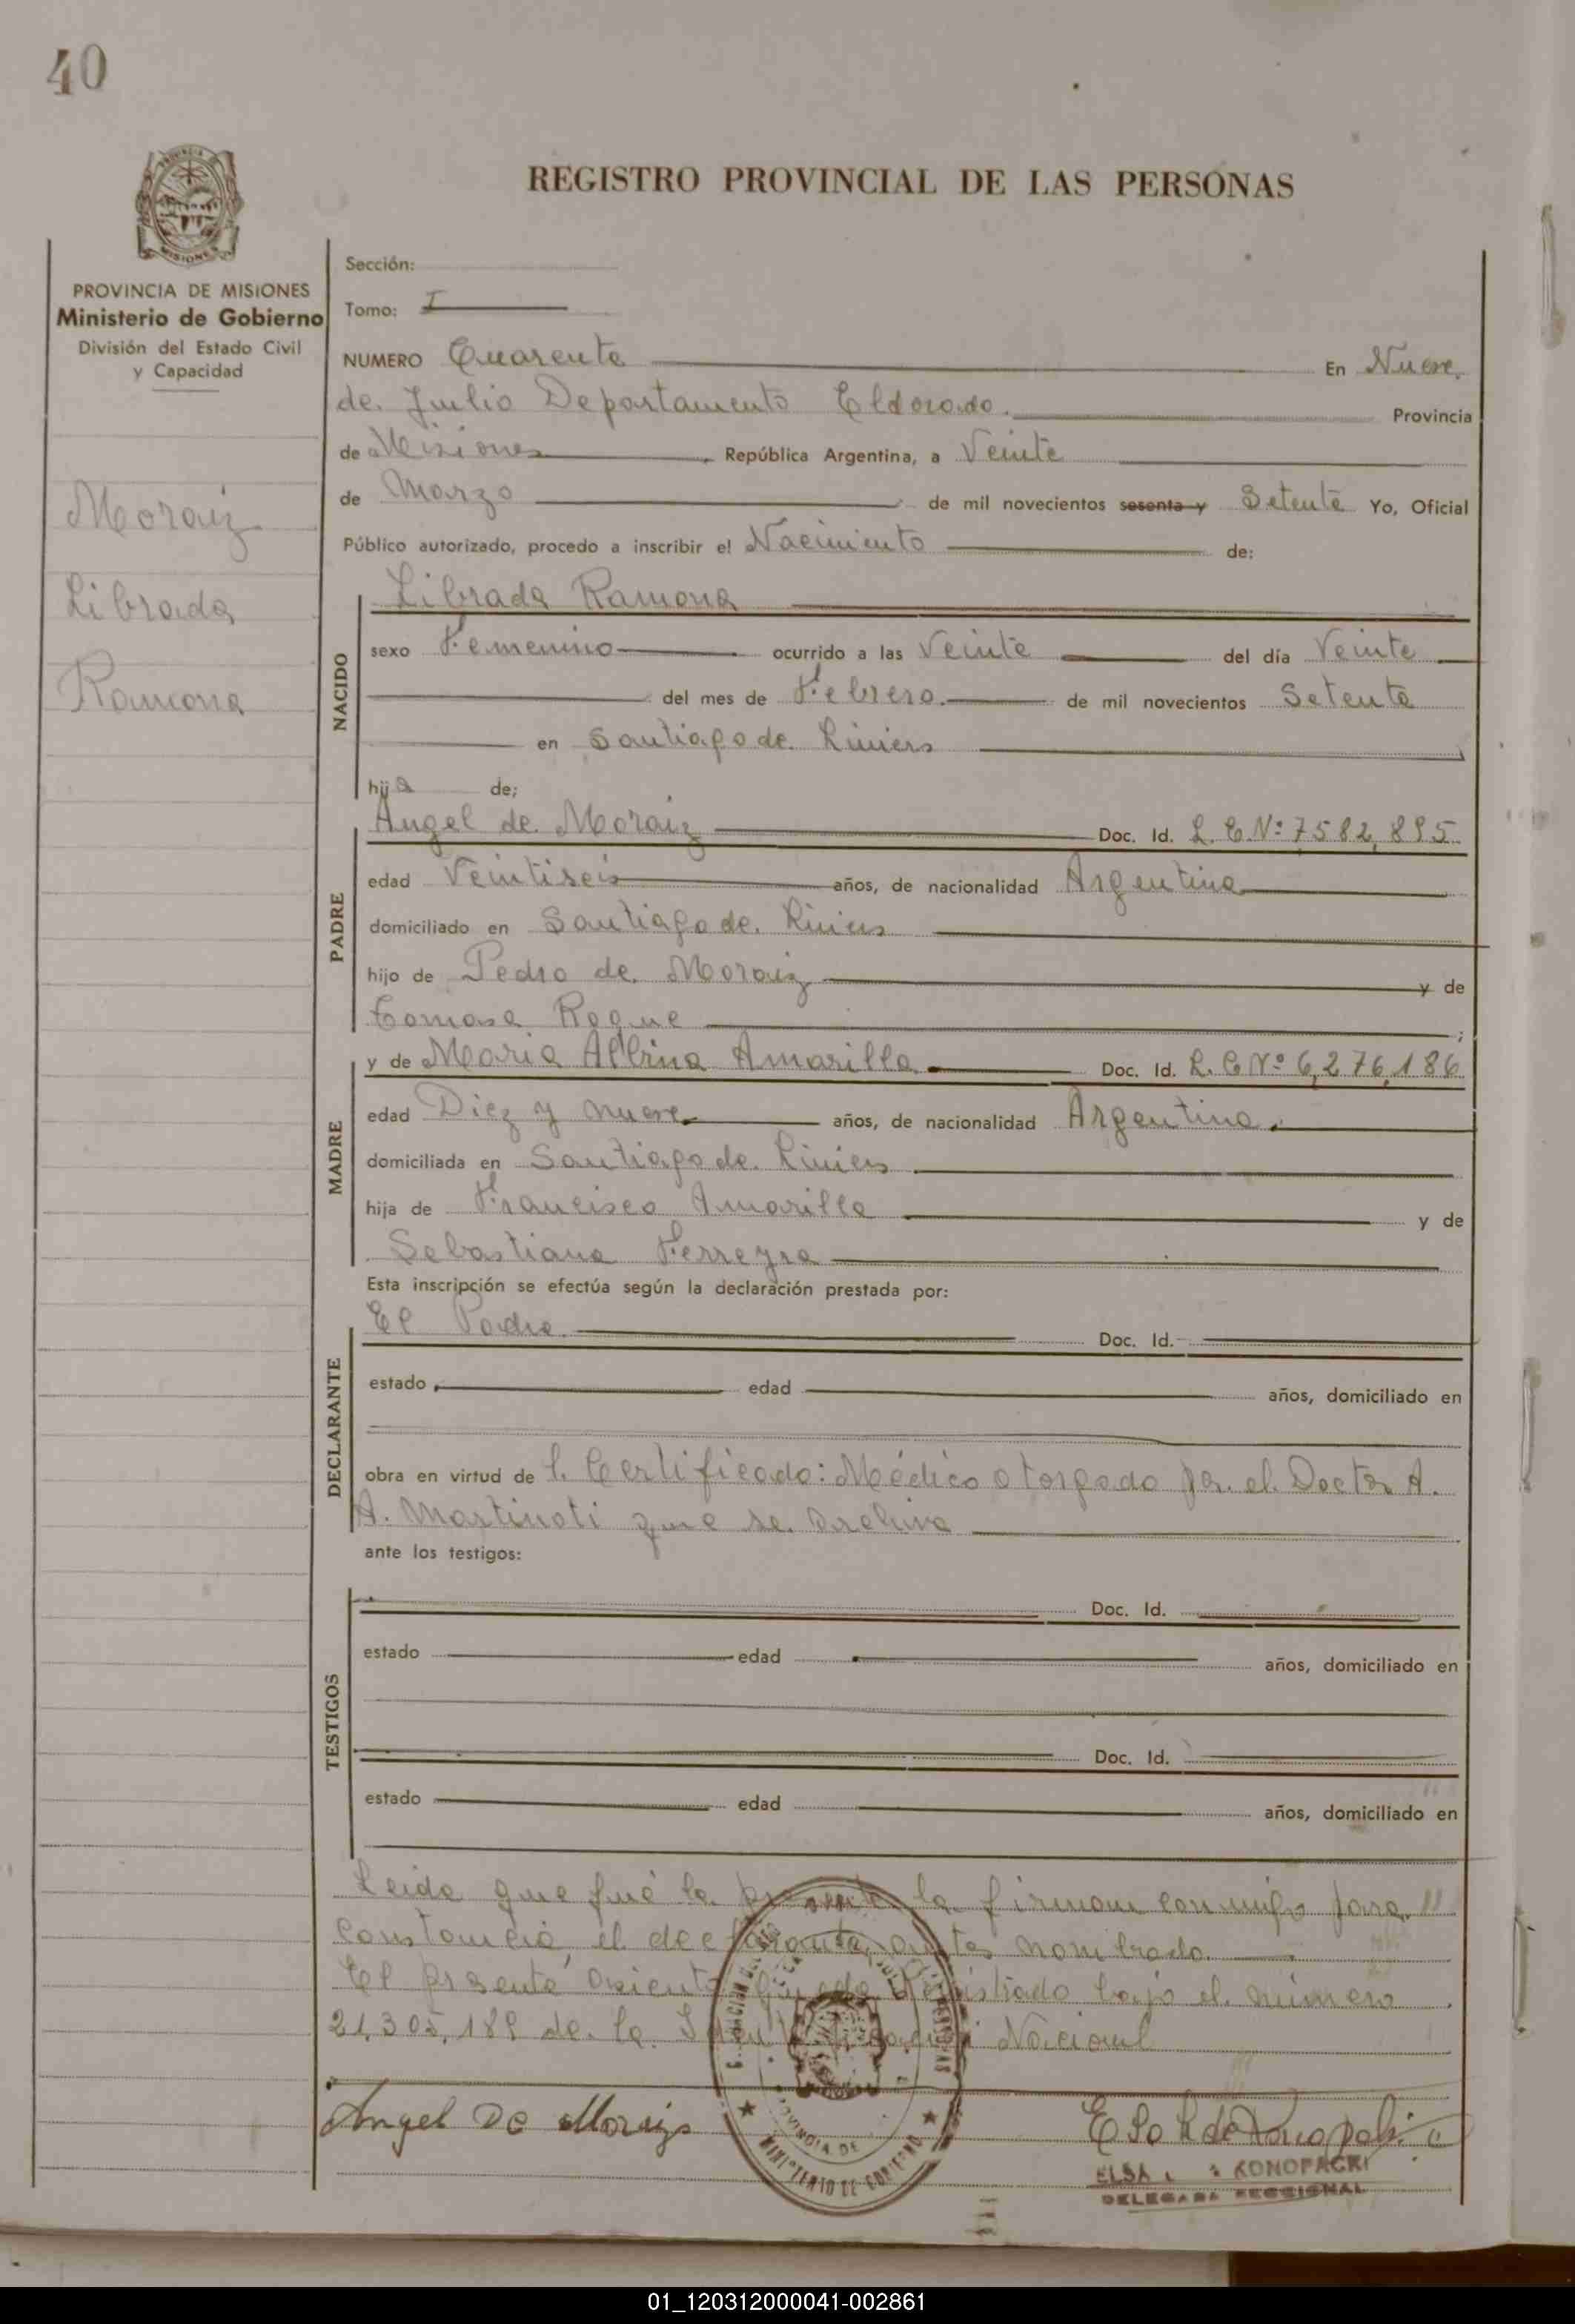 40
REGISTRO PROVINCIAL DE LAS PERSONAS
PROVINCIA DE MISIONES
Ministerio de Gobierno
División del Estado Civil
y Capacidad
Moraiz
Librada
Ramona
Sección:
Tomo: I
NUMERO Cuarenta En Nueve
de Julio Departamento Eldorado. Provincia
de Misiones, República Argentina, a Veinte
de Marzo de mil novecientos sesenta y Setenta Yo, Oficial
Público autorizado, procedo a inscribir el Nacimiento de:
NACIDO
Librada Ramona
sexo Femenino ocurrido a las Veinte del día Veinte
del mes de Febrero. de mil novecientos Setenta
en Santiago de Liniers
hija de;
PADRE
Angel de Moraiz Doc. Id. L. E. Nº 7582,895
edad Veintiseis años, de nacionalidad Argentina
domiciliado en Santiago de Liniers
hijo de Pedro de Moraiz y de
Tomasa Roque ;
MADRE
y de Maria Albina Amarilla Doc. Id. L. C Nº 6,276,186
edad Diez y nueve años, de nacionalidad Argentina.
domiciliada en Santiago de Liniers
hija de Francisco Amarilla y de
Sebastiana Ferreyra
Esta inscripción se efectúa según la declaración prestada por:
DECLARANTE
El Padre Doc. Id.
estado edad años, domiciliado en
obra en virtud de l. Certificado: Médico otorgado por el Doctor A.
A. Martinoti que se archiva
ante los testigos:
TESTIGOS
Doc. Id.
estado edad años, domiciliado en
Doc. Id.
estado edad años, domiciliado en
Leida que fué la presente la firman conmigo para "
constancia, el declarante antes nombrado.
El presente asiento queda registrado bajo el número
21,305,189 de la Nacional
Angel De Moraiz
ELSA KONOPACKI
DELEGADA SECCIONAL
MINISTERIO DE GOBIERNO
PROVINCIA DE
01_120312000041-002861